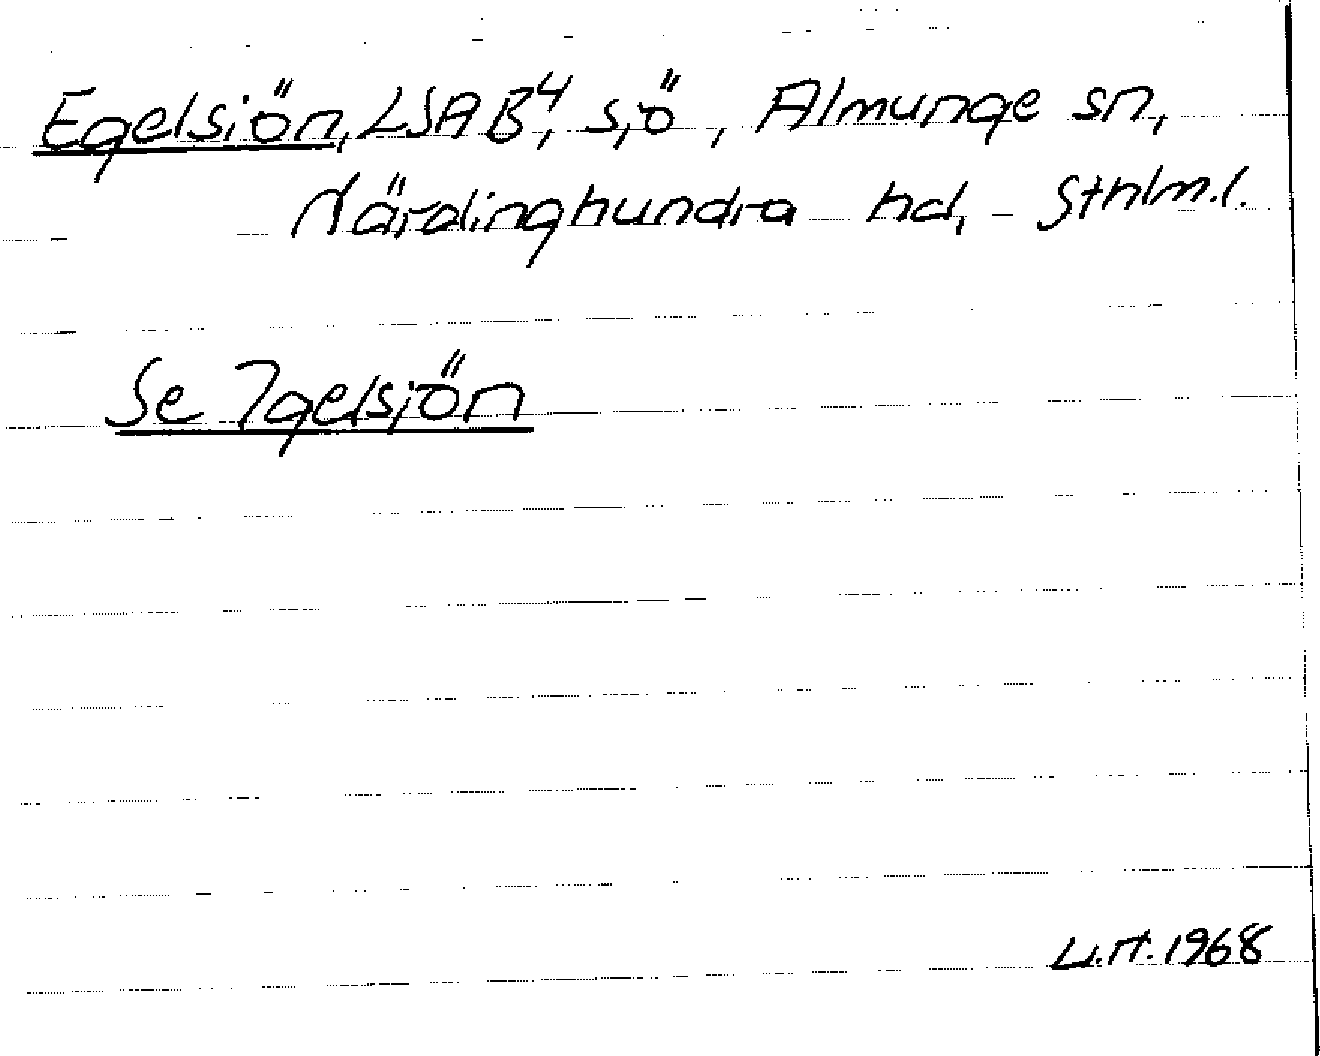 Egelsjön, LSA B4, sjö, Almunge sn,
Närdinghundra hd, Sthlm.l.
Se Igelsjön
1968